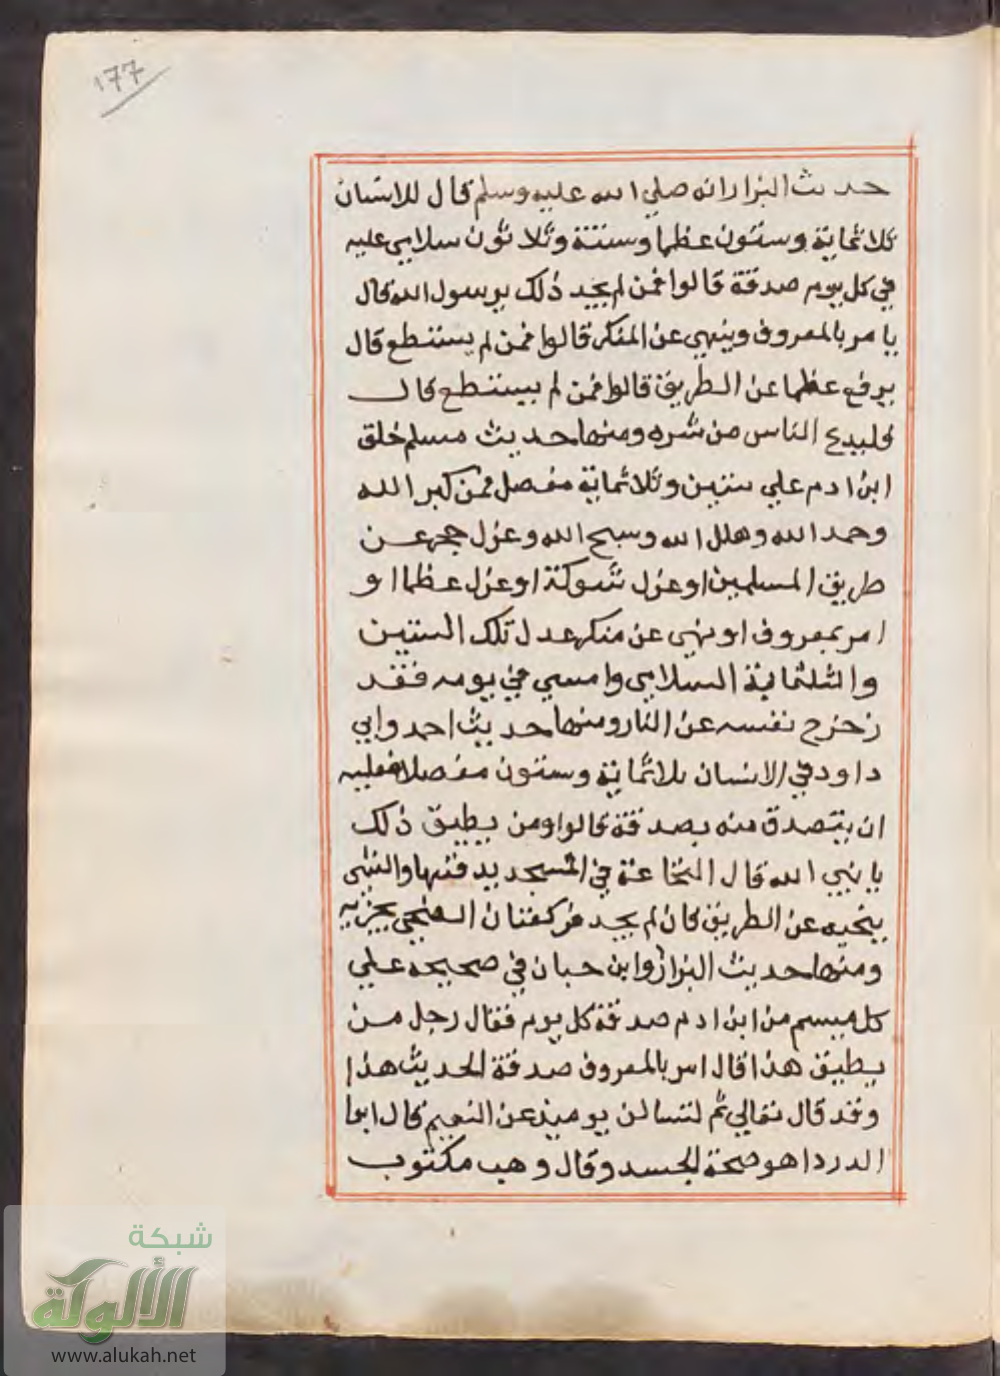 ١٧٧
حديث البزار انه صلي الله عليه وسلم قال للانسان
ثلاثماية وستون عظما وستة وثلاثون سلامي عليه
في كل يوم صدقة قالوا فمن لم يجد ذلك يرسول الله قال
يامر بالمعروف وينهي عن المنكر قالوا فمن لم يستطع قال
يرفع عظما عن الطريق قالوا فمن لم يستطع قال
فليدع الناس من شره ومنها حديث مسلم خلق
ابن ادم علي ستين وثلاثماية مفصل فمن كبر الله
وحمد الله وهلل الله وسبح الله وعزل حجر عن
طريق المسلمين او عزل شوكة او عزل عظما او
امر بمعروف او نهي عن منكر عدل تلك الستين
والثلثماية السلامي وامسي في يومه فقد
زحزح نفسه عن النار ومنها حديث احمد وابي
داود في الانسان ثلاثماية وستون مفصلا فعليه
ان يتصدق منه بصدقة قالوا ومن يطيق ذلك
يا نبي الله قال النخاعة في المسجد يدفنها والشي
ينحيه عن الطريق فان لم يجد فركعتان الضحي يجزيه
ومنها حديث البزار وابن حبان في صحيحه علي
كل ميسم من ابن ادم صدقة كل يوم فقال رجل من
يطيق هذا قال امر بالمعروف صدقة الحديث هذا
وقد قال تعالي ثم لتسالن يوميذ عن النعيم قال ابوا
الدرداهو صحة الجسد وقال وهب مكتوب
شبكة
الألوكة
www.alukah.net